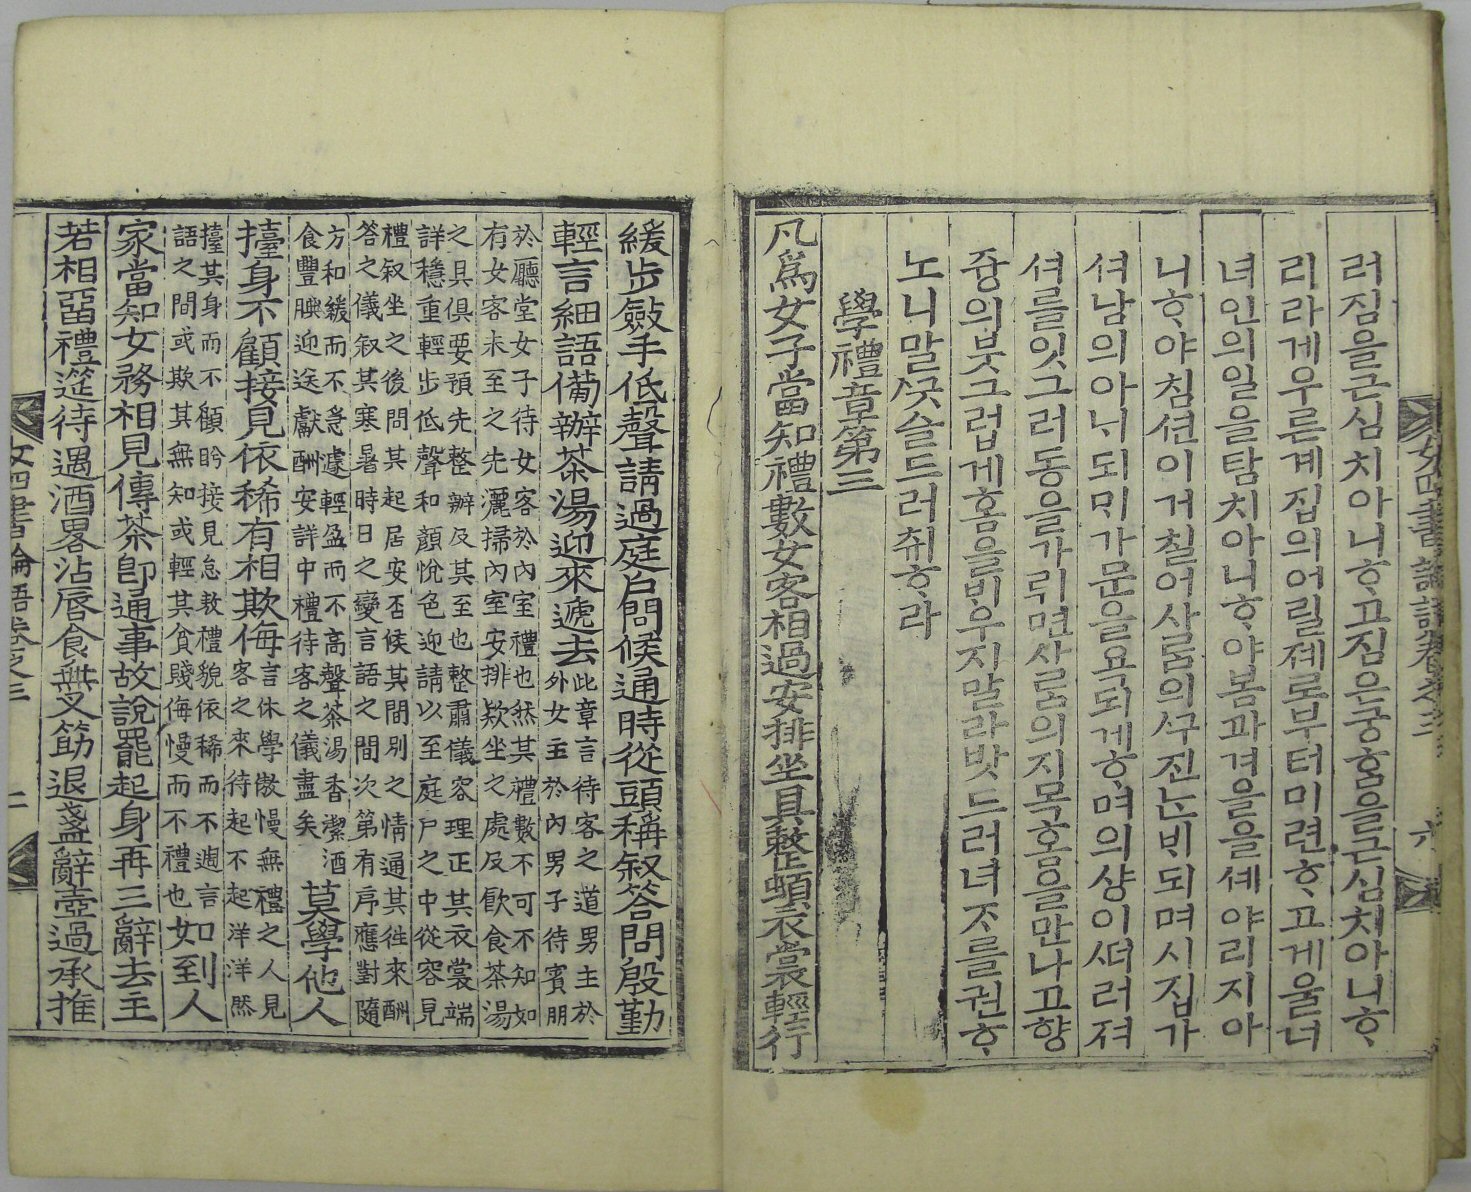 女四書諺解卷之三 六
러짐을근심치아니ᄒᆞ고짐은궁홈을근심치아니ᄒᆞ
리라게우른계집의어릴졔로부터미련ᄒᆞ고게울너
녀인의일을탐치아니ᄒᆞ야봄과겨을을셰야리지아
니ᄒᆞ야침션이거칠어사ᄅᆞᆷ의ᄭᅮ진ᄂᆞᆫᄇᆡ되며시집가
셔남의아ᄂᆡ되ᄆᆡ가문을욕되게ᄒᆞ며의샹이ᄯᅥ러져
셔를잇그러동을가뤼면사ᄅᆞᆷ의지목홈을만나고향
즁의붓그럽게홈을ᄇᆡ우지말라밧드러녀ᄌᆞ를권ᄒᆞ
노니말ᄭᅳᆺ슬드러취ᄒᆞ라
學禮章第三
凡爲女子當知禮數女客相過安排坐具整頓衣裳輕行
緩步斂手低聲請過庭戶問候通時從頭稱叙答問殷勤
輕言細語備辦茶湯迎來遞去此章言待客之道男主於
外女主於內男子待賓朋
於廳堂女子待女客於內室禮也然其禮數不可不知如
有女客未至之先灑掃內室安排欵坐之處及飮食茶湯
之具俱要預先整辦及其至也整肅儀容理正其衣裳端
詳穩重輕步低聲和顏悅色迎請以至庭戶之中從容見
禮叙坐之後問其起居安否候其間別之情通其徃來酬
答之儀叙其寒暑時日之變言語之間次第有序應對隨
方和緩而不急遽輕盈而不高聲茶湯香潔酒
食豐腆迎送獻酬安詳中禮待客之儀盡矣莫學他人
擡身不顧接見依稀有相欺侮言休學傲慢無禮之人見
客之來待起不起洋洋然
擡其身而不顧盻接見怠敖禮貌依稀而不週言
語之間或欺其無知或輕其貧賤侮慢而不禮也如到人
家當知女務相見傳茶卽通事故說罷起身再三辭去主
若相留禮筵待遇酒畧沾唇食無叉筯退盞辭壺過承推
女四書論語卷之三 二